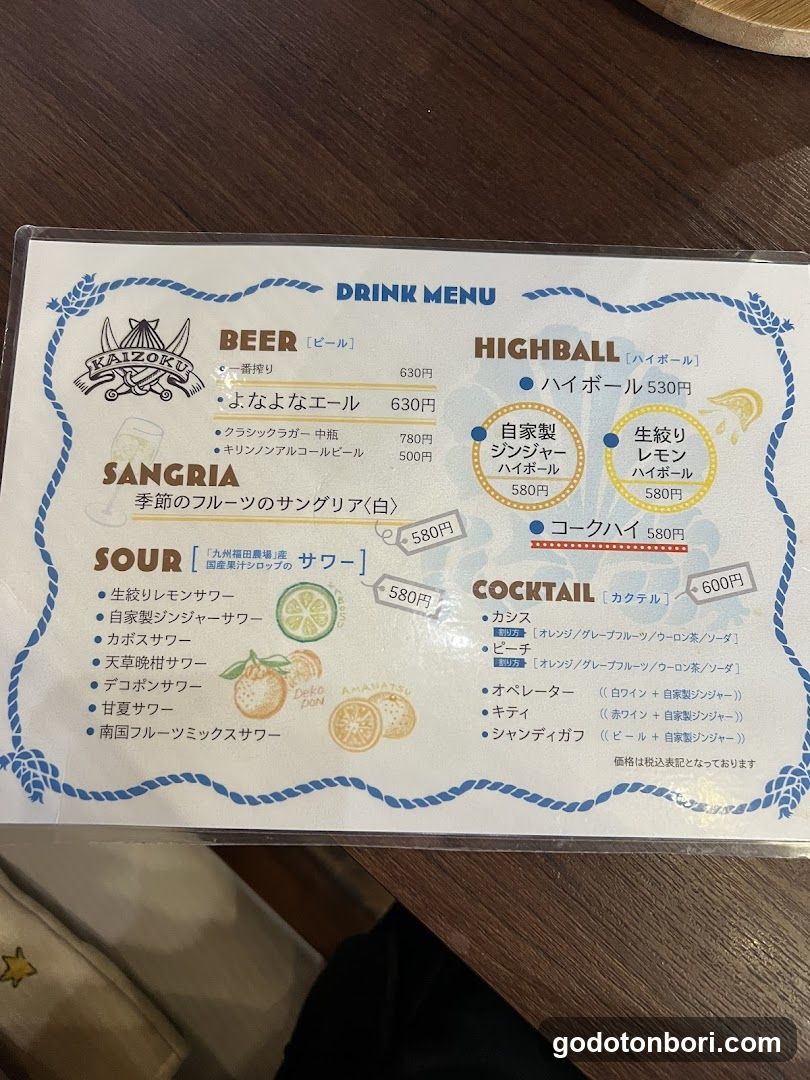 DRINK MENU
KAIZOKU
BEER [ビール]
一番搾り 630円
よなよなエール 630円
クラシックラガー 中瓶 780円
キリンノンアルコールビール 500円
SANGRIA
季節のフルーツのサングリア〈白〉
580円
SOUR [「九州福田農場」産
国産果汁シロップの サワー]
580円
• 生絞りレモンサワー
• 自家製ジンジャーサワー
• カボスサワー
• 天草晩柑サワー
• デコポンサワー
• 甘夏サワー
• 南国フルーツミックスサワー
Deko
PON
AMANATSU
HIGHBALL [ハイボール]
• ハイボール 530円
自家製
ジンジャー
ハイボール
580円
生絞り
レモン
ハイボール
580円
• コークハイ 580円
COCKTAIL [カクテル]
600円
• カシス
割り方 [オレンジ/グレープフルーツ/ウーロン茶/ソーダ]
• ピーチ
割り方 [オレンジ/グレープフルーツ/ウーロン茶/ソーダ]
• オペレーター ((白ワイン + 自家製ジンジャー))
• キティ ((赤ワイン + 自家製ジンジャー))
• シャンディガフ ((ビール + 自家製ジンジャー))
価格は税込表記となっております
godotonbori.com